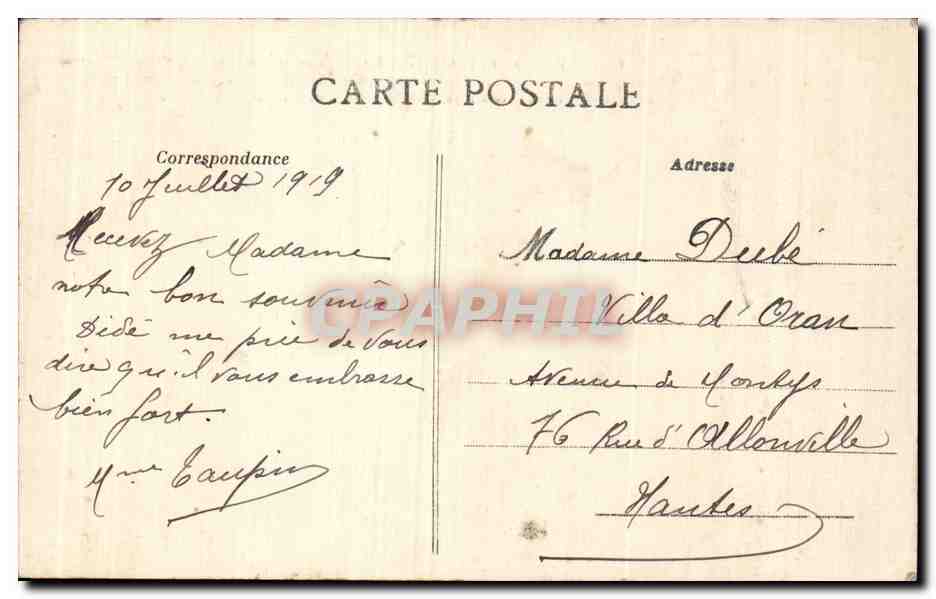 CARTE POSTALE
Correspondance
10 Juillet 1919
Recevez Madame
notre bon souvenir
Didé me prie de vous
dire qu'il vous embrasse
bien fort.
Mme Taupin
Adresse
Madame Dubé
Villa d'Oran
Avenue de
76 Rue d'Allonville
Nantes
CPAPHIL